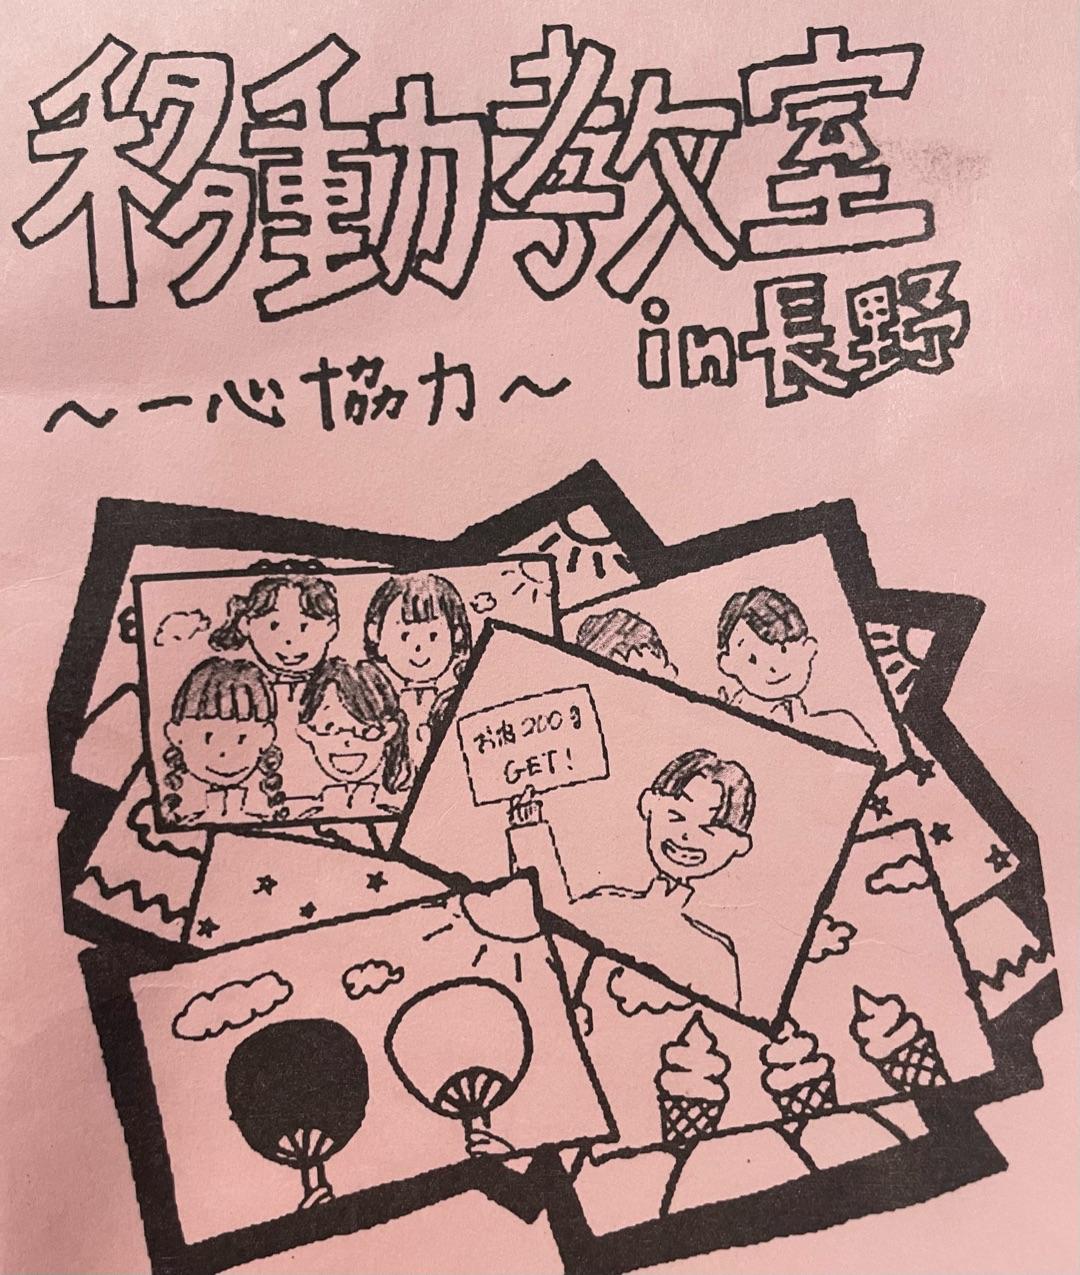 移動教室
in長野
～一心協力～
お宿200g
GET!